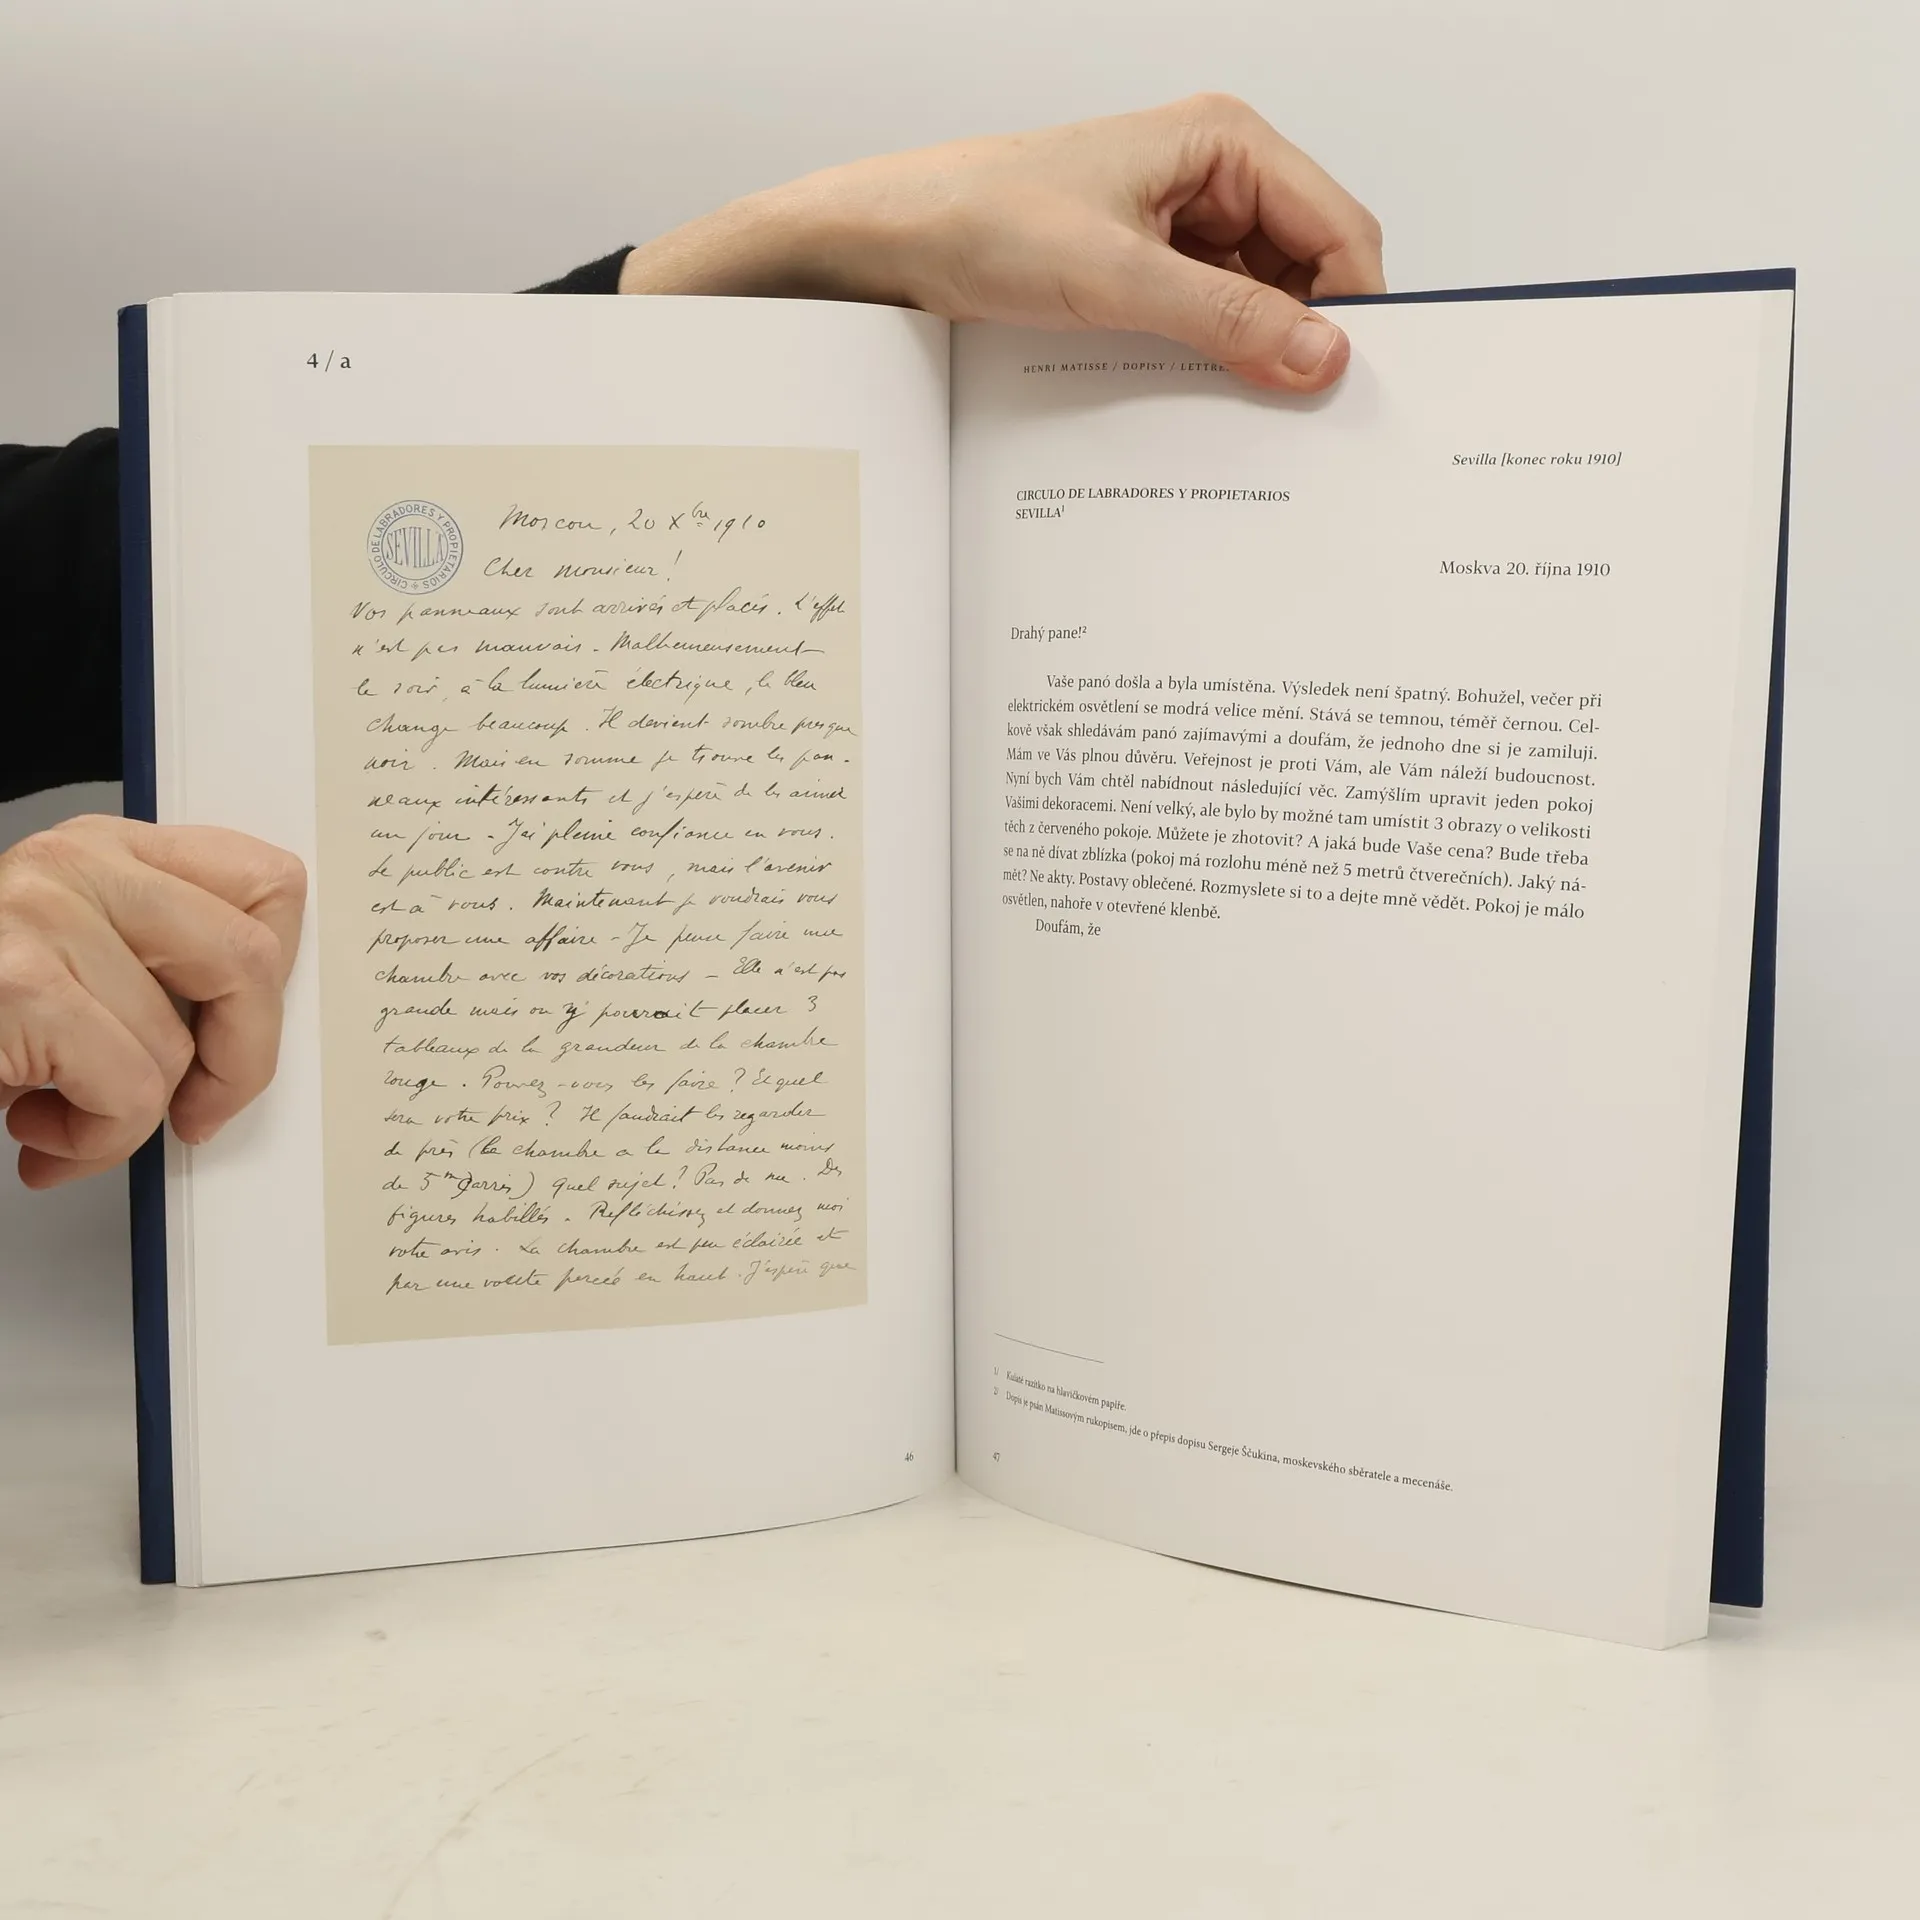 4 / a
CIRCULO DE LABRADORES Y PROPIETARIOS
SEVILLA
Moscou, 20 Xbre 1910
Cher Monsieur!
Vos panneaux sont arrivés et placés. L'effet
n'est pas mauvais - Malheureusement
le soir, à la lumière électrique, le bleu
change beaucoup. Il devient sombre presque
noir. Mais en somme je trouve les pan-
neaux intéressants et j'espère de les aimer
un jour - J'ai pleine confiance en vous.
Le public est contre vous, mais l'avenir
est à vous. Maintenant je voudrais vous
proposer une affaire - Je pense faire une
chambre avec vos décorations - Elle n'est pas
grande mais on y pourrait placer 3
tableaux de la grandeur de la chambre
rouge. Pouvez-vous les faire? Et quel
sera votre prix? Il faudrait les regarder
de près (la chambre a la distance moins
de 5 m carrés) quel sujet? Pas de nu. Des
figures habillés. Réfléchissez et donnez moi
votre avis. La chambre est peu éclairée et
par une voute percée en haut. J'espère que
46
HENRI MATISSE / DOPISY / LETTRE
Sevilla [konec roku 1910]
CIRCULO DE LABRADORES Y PROPIETARIOS
SEVILLA1
Moskva 20. října 1910
Drahý pane!2
Vaše panó došla a byla umístěna. Výsledek není špatný. Bohužel, večer při
elektrickém osvětlení se modrá velice mění. Stává se temnou, téměř černou. Cel-
kově však shledávám panó zajímavými a doufám, že jednoho dne si je zamiluji.
Mám ve Vás plnou důvěru. Veřejnost je proti Vám, ale Vám náleží budoucnost.
Nyní bych Vám chtěl nabídnout následující věc. Zamýšlím upravit jeden pokoj
Vašimi dekoracemi. Není velký, ale bylo by možné tam umístit 3 obrazy o velikosti
těch z červeného pokoje. Můžete je zhotovit? A jaká bude Vaše cena? Bude třeba
se na ně dívat zblízka (pokoj má rozlohu méně než 5 metrů čtverečních). Jaký ná-
mět? Ne akty. Postavy oblečené. Rozmyslete si to a dejte mně vědět. Pokoj je málo
osvětlen, nahoře v otevřené klenbě.
Doufám, že
1/ Kulaté razítko na hlavičkovém papíře.
2/ Dopis je psán Matissovým rukopisem, jde o přepis dopisu Sergeje Ščukina, moskevského sběratele a mecenáše.
47